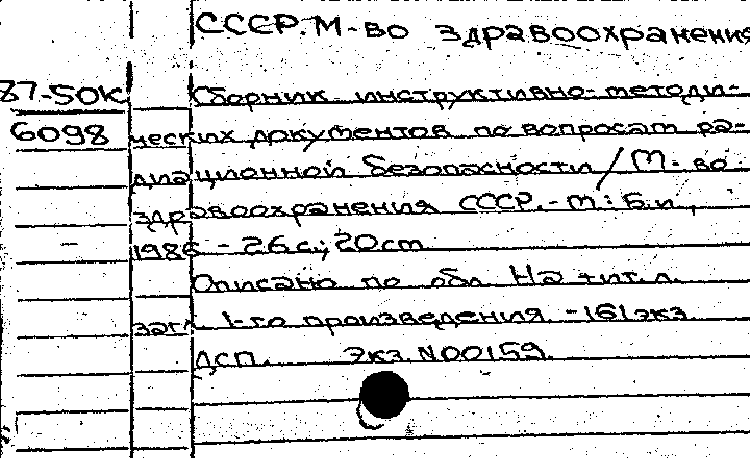 СССР. М-во здравоохранения
87-50К Сборник инструктивно-методи-
6098 ческих документов по вопросам ра-
диационной безопасности / М-во
здравоохранения СССР. - М.: Б.и.,
1986 - 26 с.; 20 cm.
Описано по обл. На тит. л.
загл. 1-го произведения. - 161 экз.
ДСП. Экз. N00159.